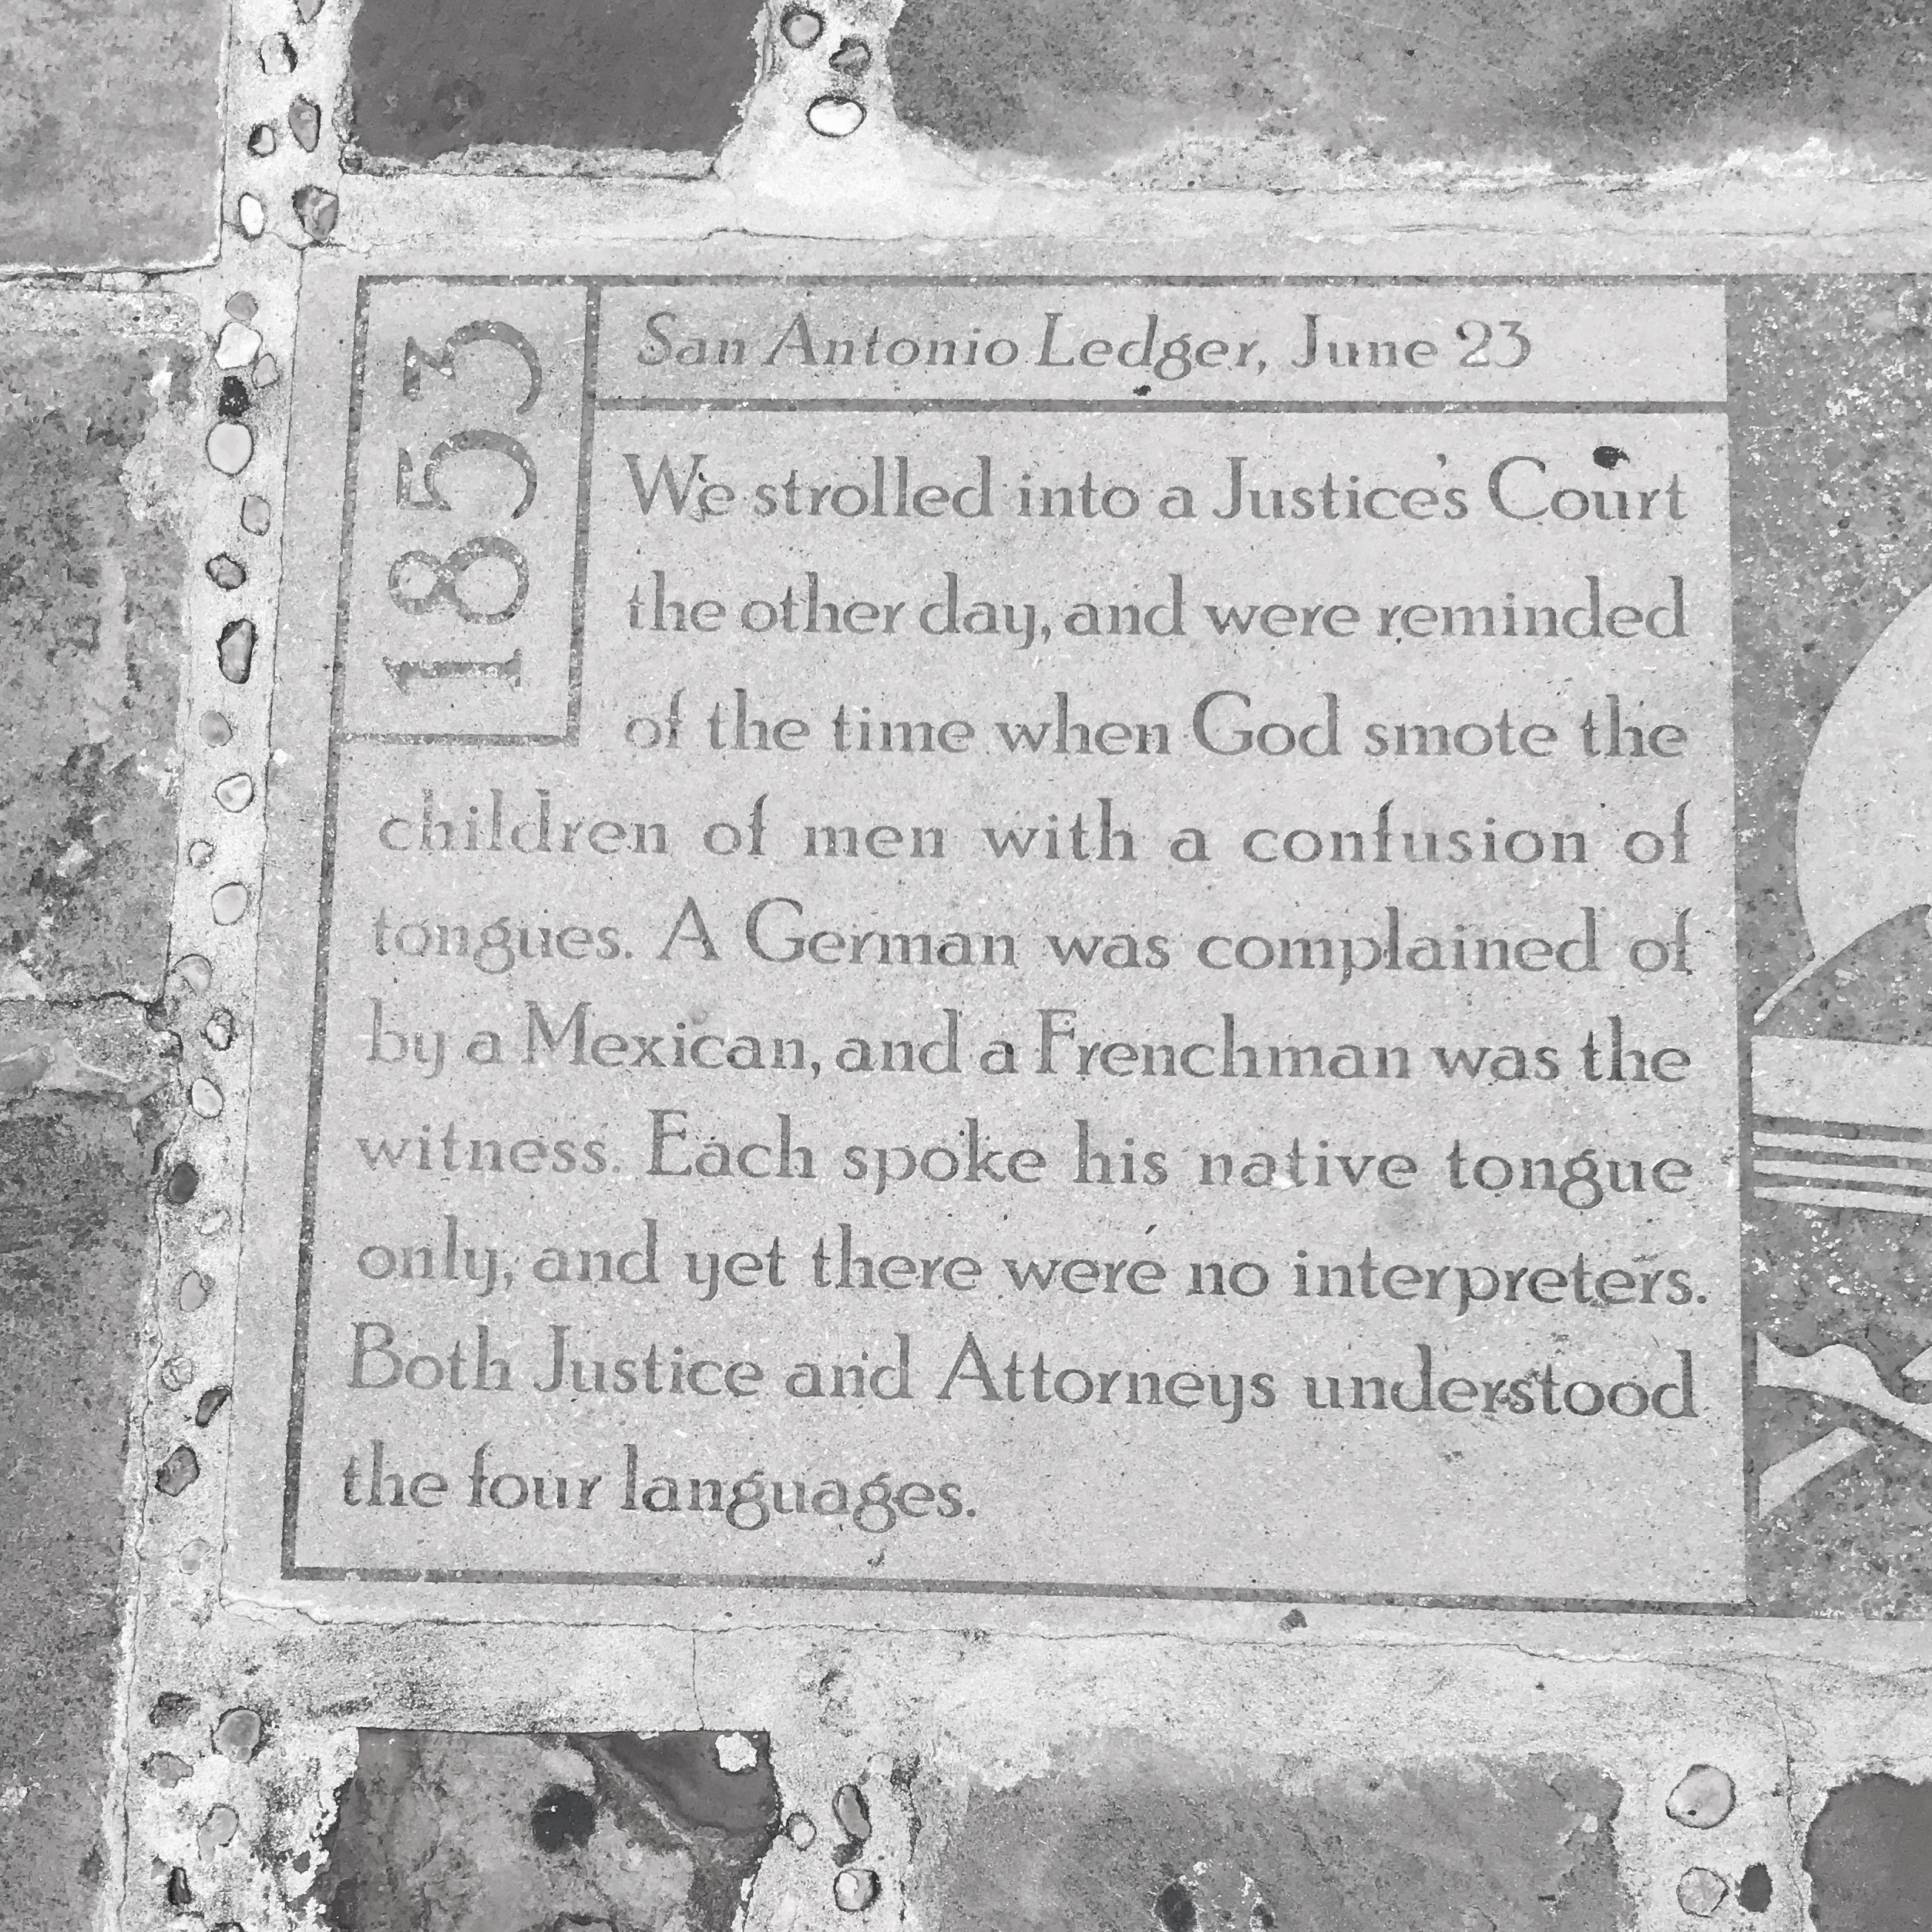 1853
San Antonio Ledger, June 23
We strolled into a Justice's Court
the other day, and were reminded
of the time when God smote the
children of men with a confusion of
tongues. A German was complained of
by a Mexican, and a Frenchman was the
witness. Each spoke his native tongue
only, and yet there were no interpreters.
Both Justice and Attorneys understood
the four languages.